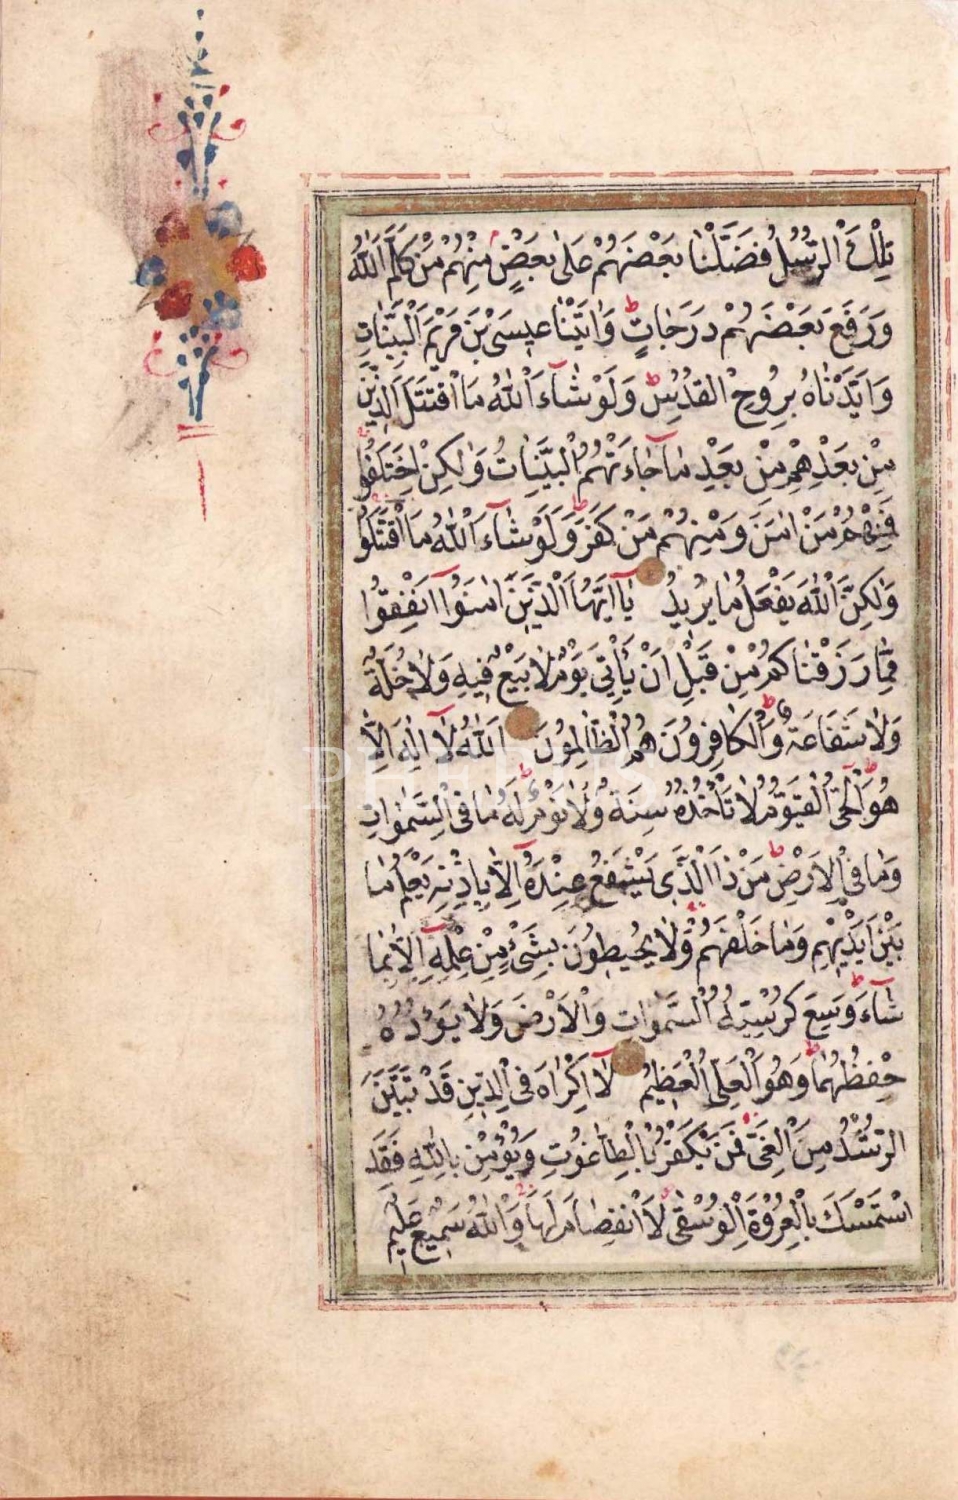 تِلْكَ الرُّسُلُ فَضَّلْنَا بَعْضَهُمْ عَلٰى بَعْضٍ مِنْهُمْ مَنْ كَلَّمَ اللّٰهُ
وَرَفَعَ بَعْضَهُمْ دَرَجَاتٍ وَاٰتَيْنَا عِيسَى بْنَ مَرْيَمَ الْبَيِّنَاتِ
وَاَيَّدْنَاهُ بِرُوحِ الْقُدُسِ وَلَوْ شَآءَ اللّٰهُ مَا اقْتَتَلَ الَّذِينَ
مِنْ بَعْدِهِمْ مِنْ بَعْدِ مَا جَآءَتْهُمُ الْبَيِّنَاتُ وَلٰكِنِ اخْتَلَفُوا
فَمِنْهُمْ مَنْ اٰمَنَ وَمِنْهُمْ مَنْ كَفَرَ وَلَوْ شَآءَ اللّٰهُ مَا اقْتَتَلُوا
وَلٰكِنَّ اللّٰهَ يَفْعَلُ مَا يُرِيدُ يَآ اَيُّهَا الَّذِينَ اٰمَنُوا اَنْفِقُوا
مِمَّا رَزَقْنَاكُمْ مِنْ قَبْلِ اَنْ يَأْتِيَ يَوْمٌ لَا بَيْعٌ فِيهِ وَلَا خُلَّةٌ
وَلَا شَفَاعَةٌ وَالْكَافِرُونَ هُمُ الظَّالِمُونَ اَللّٰهُ لَآ اِلٰهَ اِلَّا
هُوَ الْحَيُّ الْقَيُّومُ لَا تَأْخُذُهُ سِنَةٌ وَلَا نَوْمٌ لَهُ مَا فِي السَّمٰوَاتِ
وَمَا فِي الْاَرْضِ مَنْ ذَا الَّذِي يَشْفَعُ عِنْدَهُ اِلَّا بِاِذْنِهِ يَعْلَمُ مَا
بَيْنَ اَيْدِيهِمْ وَمَا خَلْفَهُمْ وَلَا يُحِيطُونَ بِشَيْءٍ مِنْ عِلْمِهِ اِلَّا بِمَا
شَآءَ وَسِعَ كُرْسِيُّهُ السَّمٰوَاتِ وَالْاَرْضَ وَلَا يَؤُدُهُ
حِفْظُهُمَا وَهُوَ الْعَلِيُّ الْعَظِيمُ لَآ اِكْرَاهَ فِي الدِّينِ قَدْ تَبَيَّنَ
الرُّشْدُ مِنَ الْغَيِّ فَمَنْ يَكْفُرْ بِالطَّاغُوتِ وَيُؤْمِنْ بِاللّٰهِ فَقَدِ
اسْتَمْسَكَ بِالْعُرْوَةِ الْوُثْقٰى لَا انْفِصَامَ لَهَا وَاللّٰهُ سَمِيعٌ عَلِيمٌ